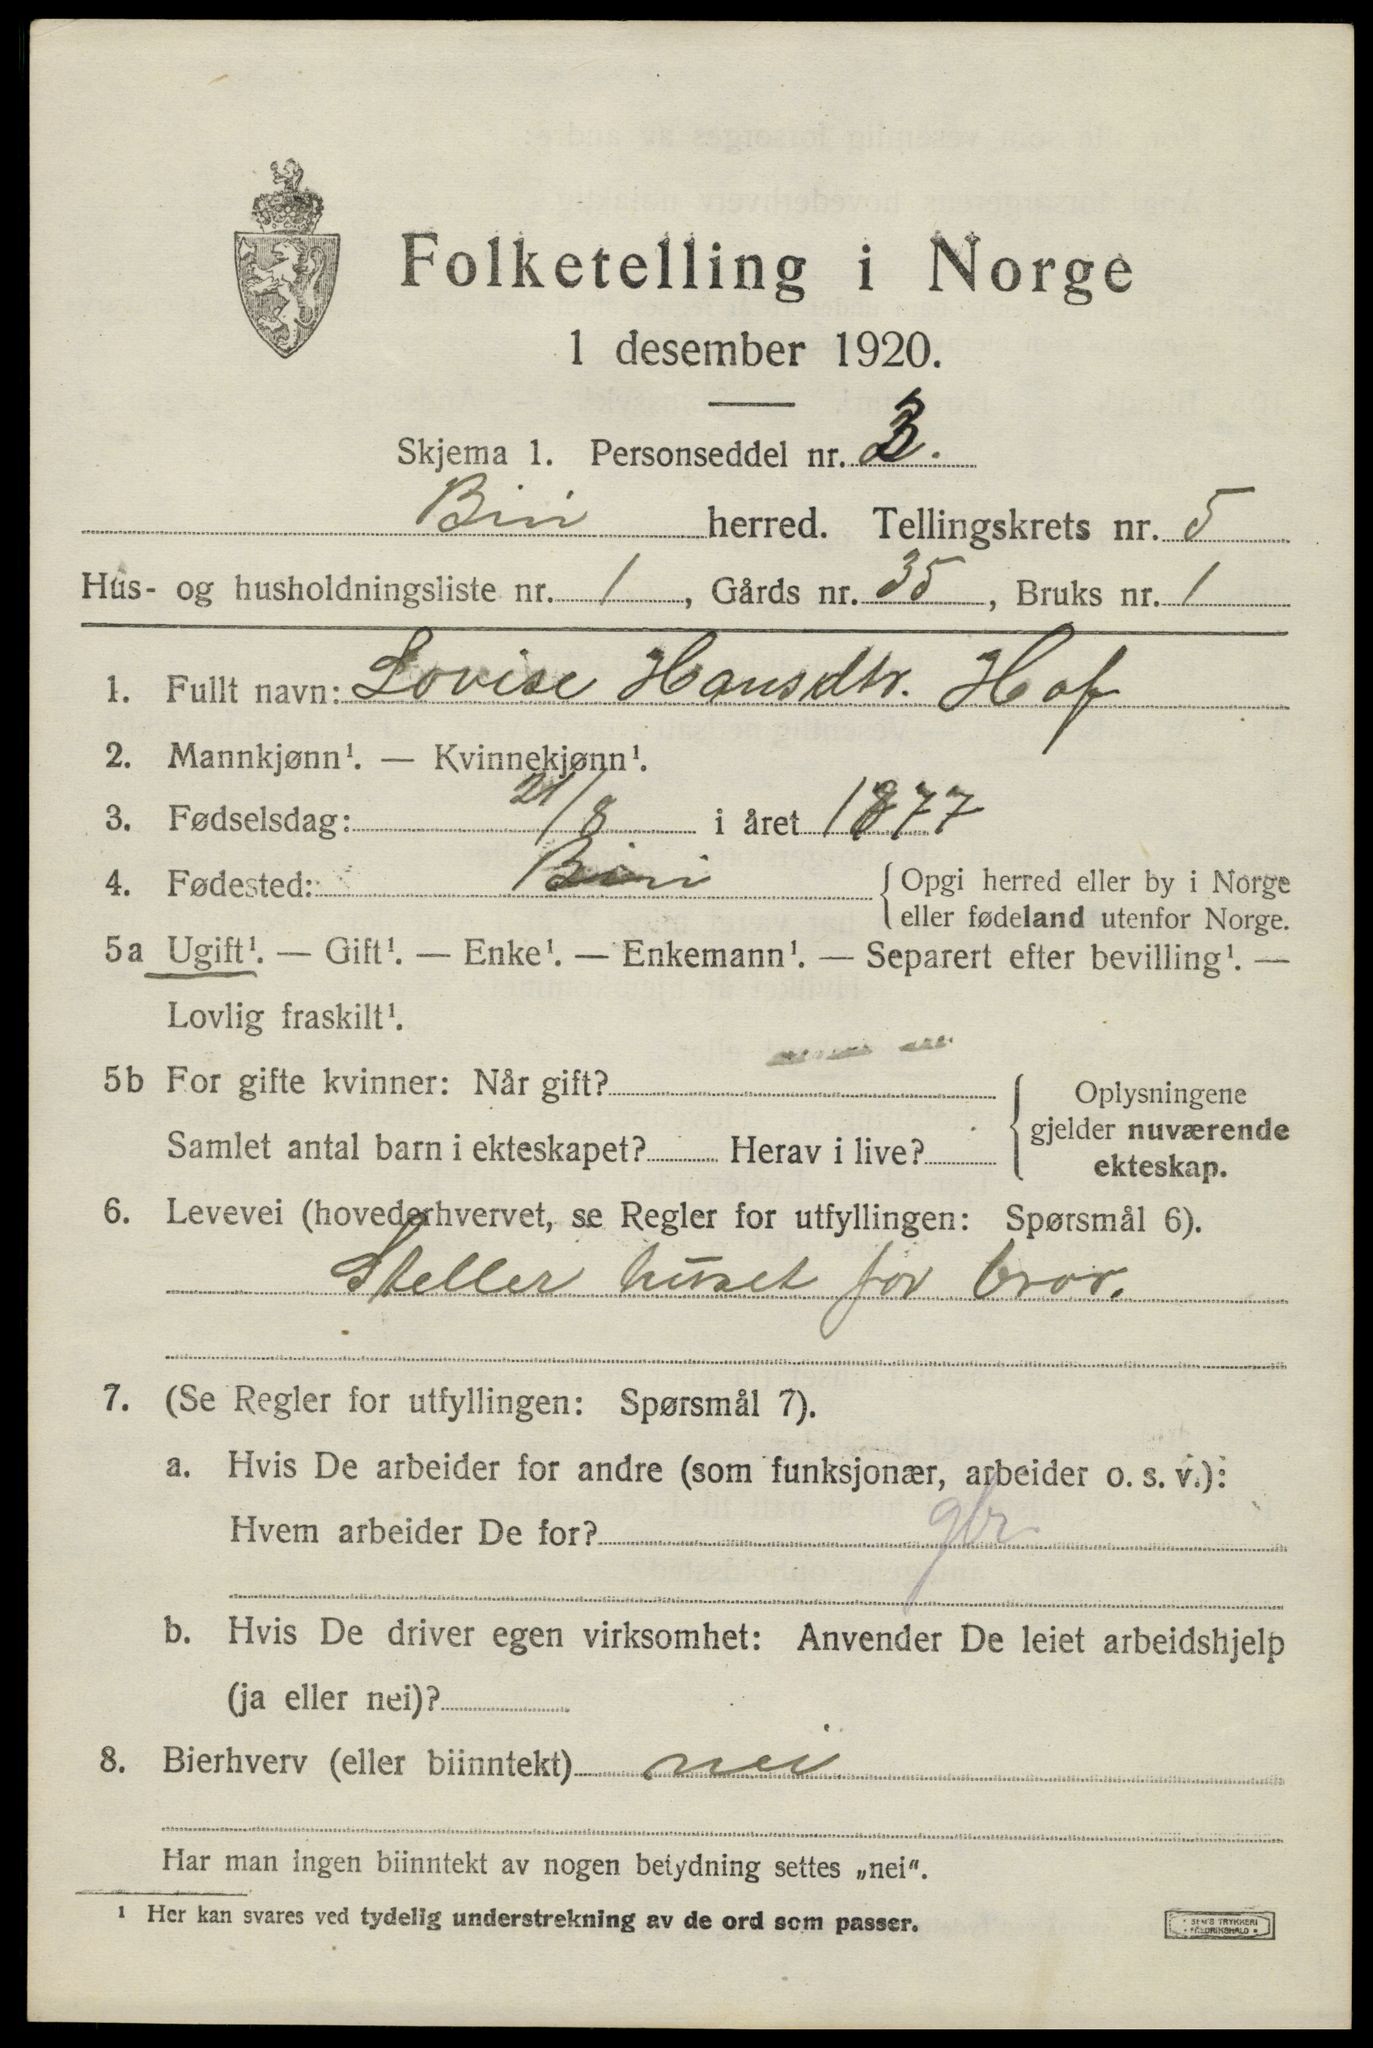 Folketelling i Norge
1 desember 1920.
Skjema 1. Personseddel nr. 3.
Biri herred. Tellingskrets nr. 5
Hus- og husholdningsliste nr. 1, Gårds nr. 35, Bruks nr. 1
1. Fullt navn: Lovise Hansdtr. Hof
2. Mannkjønn¹. — Kvinnekjønn¹.
3. Fødselsdag: 21/8 i året 1877
4. Fødested: Biri {Opgi herred eller by i Norge
eller fødeland utenfor Norge.
5a Ugift¹. — Gift¹. — Enke¹. — Enkemann¹. — Separert efter bevilling¹. —
Lovlig fraskilt¹.
5b For gifte kvinner: Når gift? { Oplysningene
gjelder nuværende
ekteskap.
Samlet antal barn i ekteskapet? Herav i live?
6. Levevei (hovederhvervet, se Regler for utfyllingen: Spørsmål 6).
Steller huset for bror.
7. (Se Regler for utfyllingen: Spørsmål 7).
a. Hvis De arbeider for andre (som funksjonær, arbeider o. s. v.):
Hvem arbeider De for? gbr
b. Hvis De driver egen virksomhet: Anvender De leiet arbeidshjelp
(ja eller nei)?
8. Bierhverv (eller biinntekt) nei
Har man ingen biinntekt av nogen betydning settes „nei“.
¹ Her kan svares ved tydelig understrekning av de ord som passer.
SEM'S TRYKKERI
FREDRIKSHALD